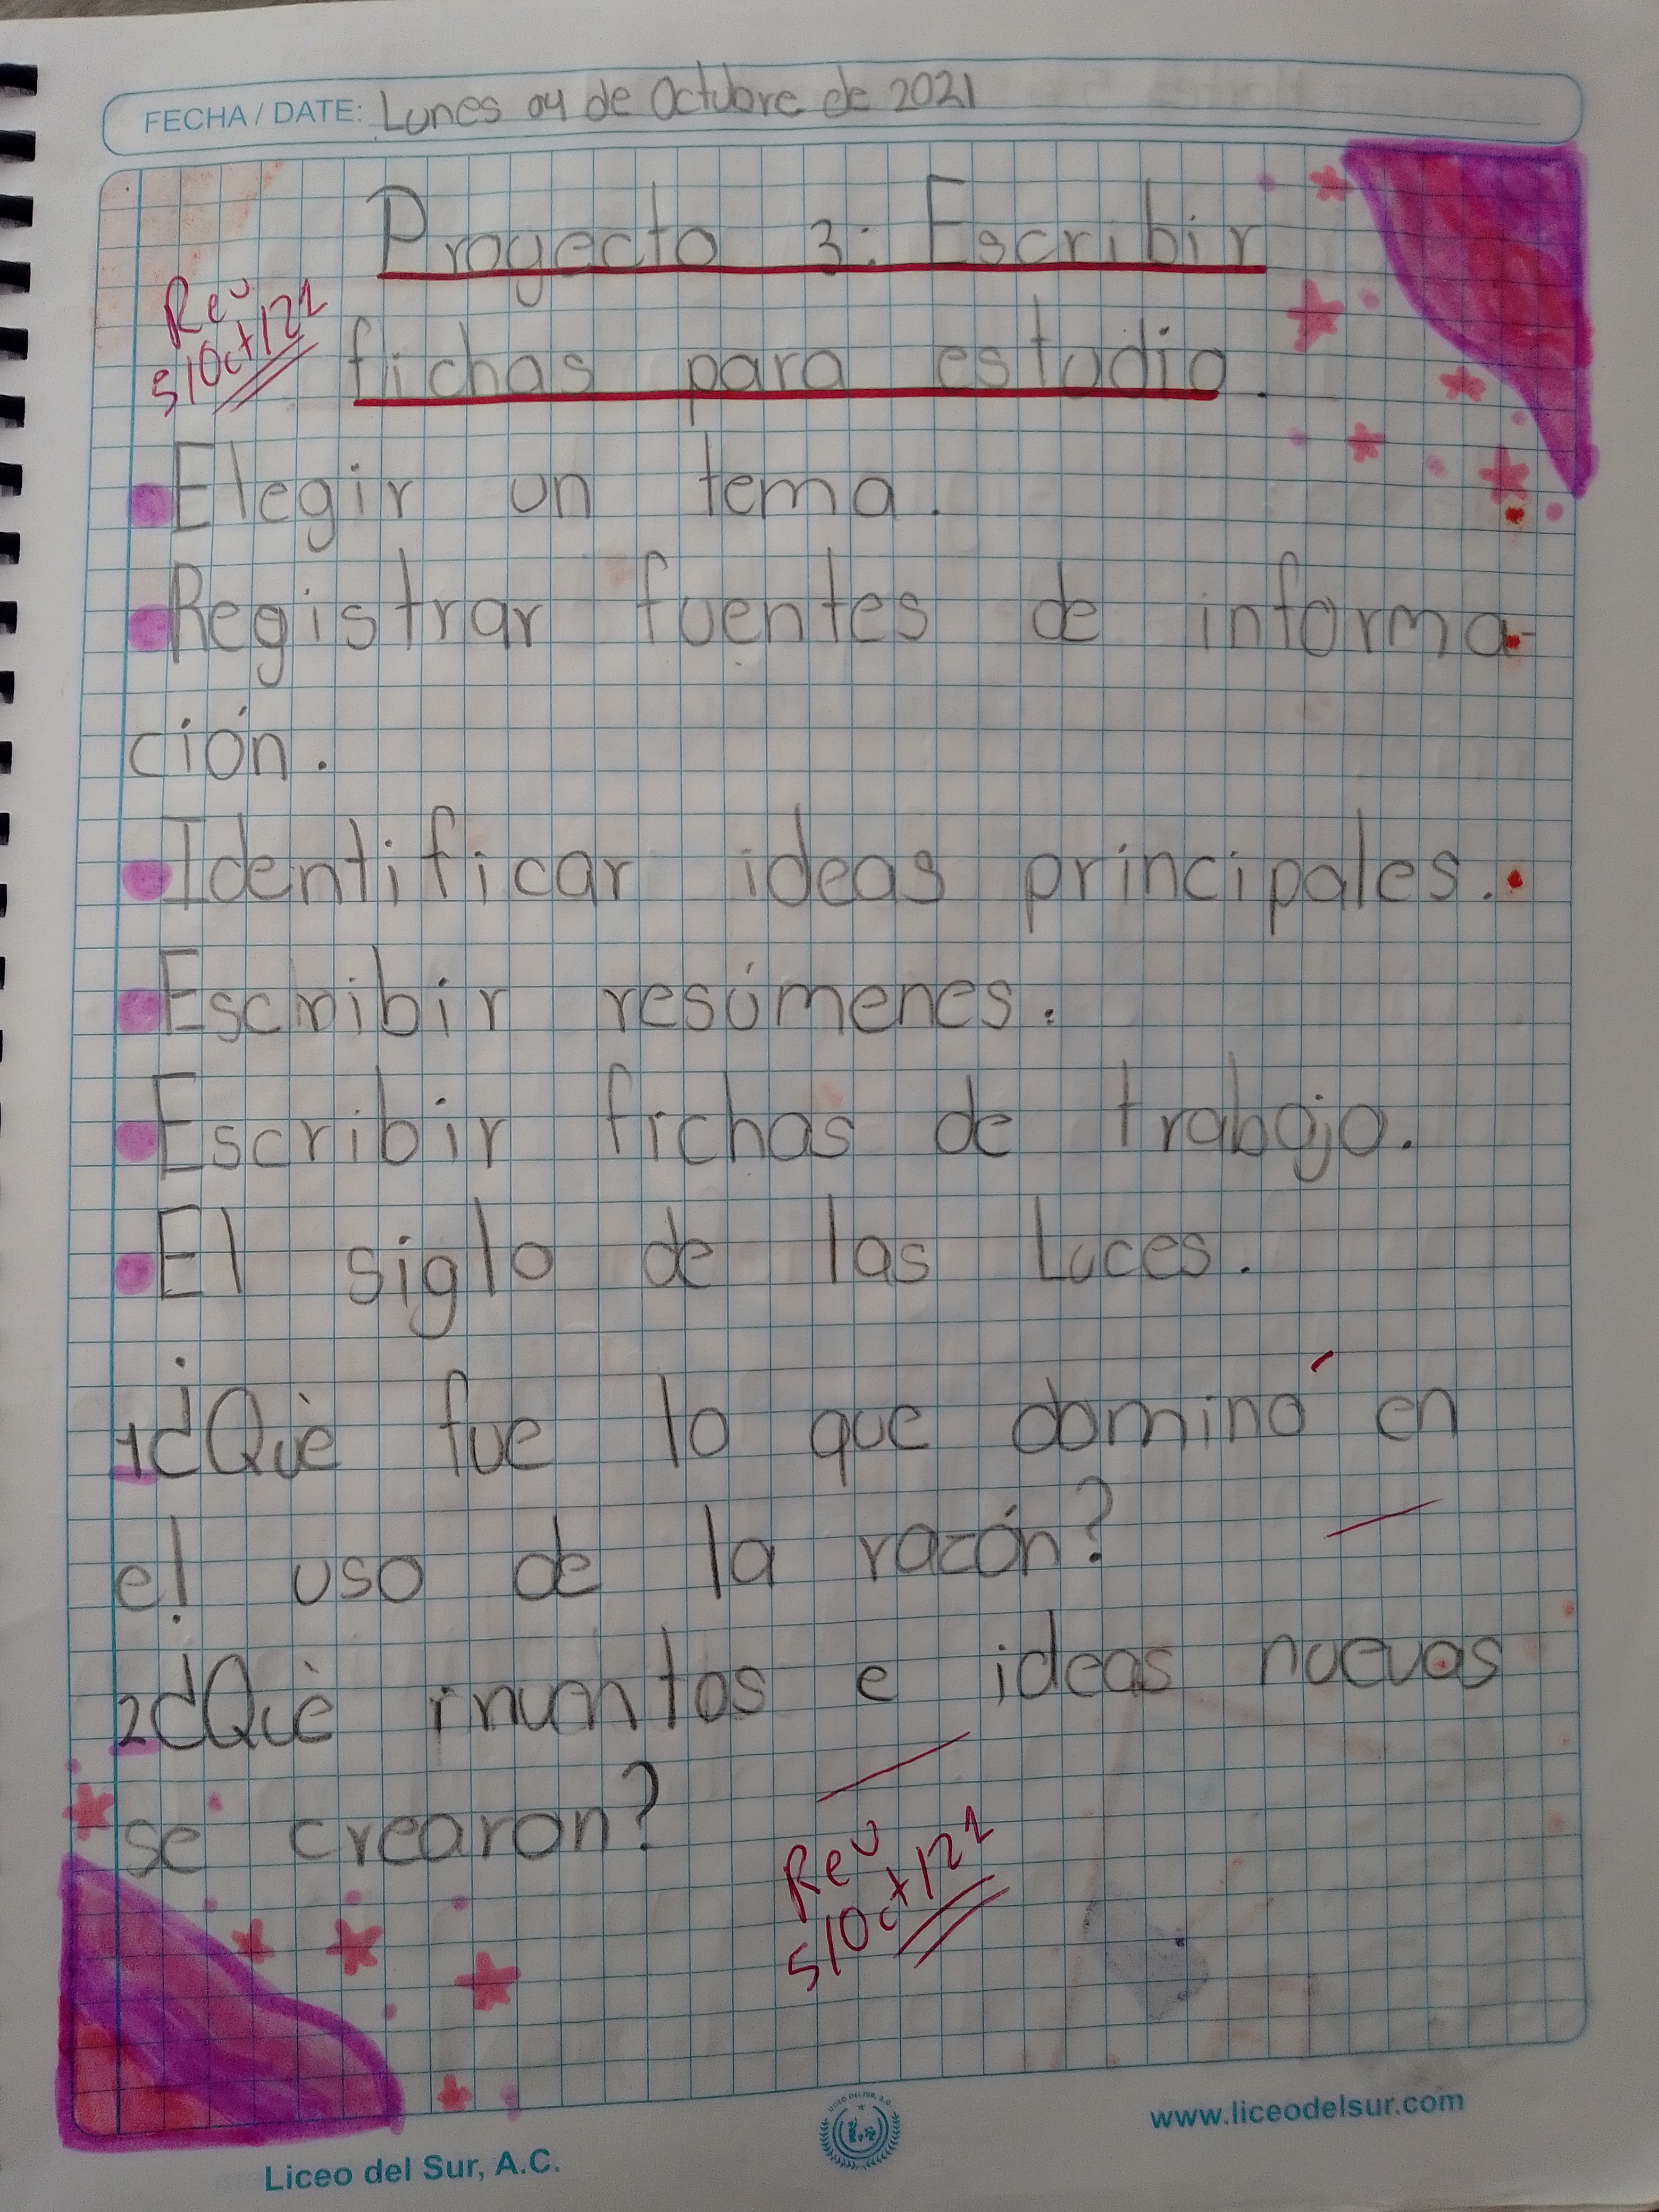 FECHA / DATE: Lunes 04 de Octubre de 2021
Proyecto 3: Escribir
Rev
5/Oct/21
fichas para estudio.
Elegir un tema.
Registrar fuentes de informa-
ción.
Identificar ideas principales.
Escribir resúmenes.
Escribir fichas de trabajo.
El siglo de las Luces.
1¿Què fue lo que dominó en
el uso de la razón?
2¿Què e ideas nuevas
se crearon?
Rev
5/Oct/21
www.liceodelsur.com
Liceo del Sur, A.C.